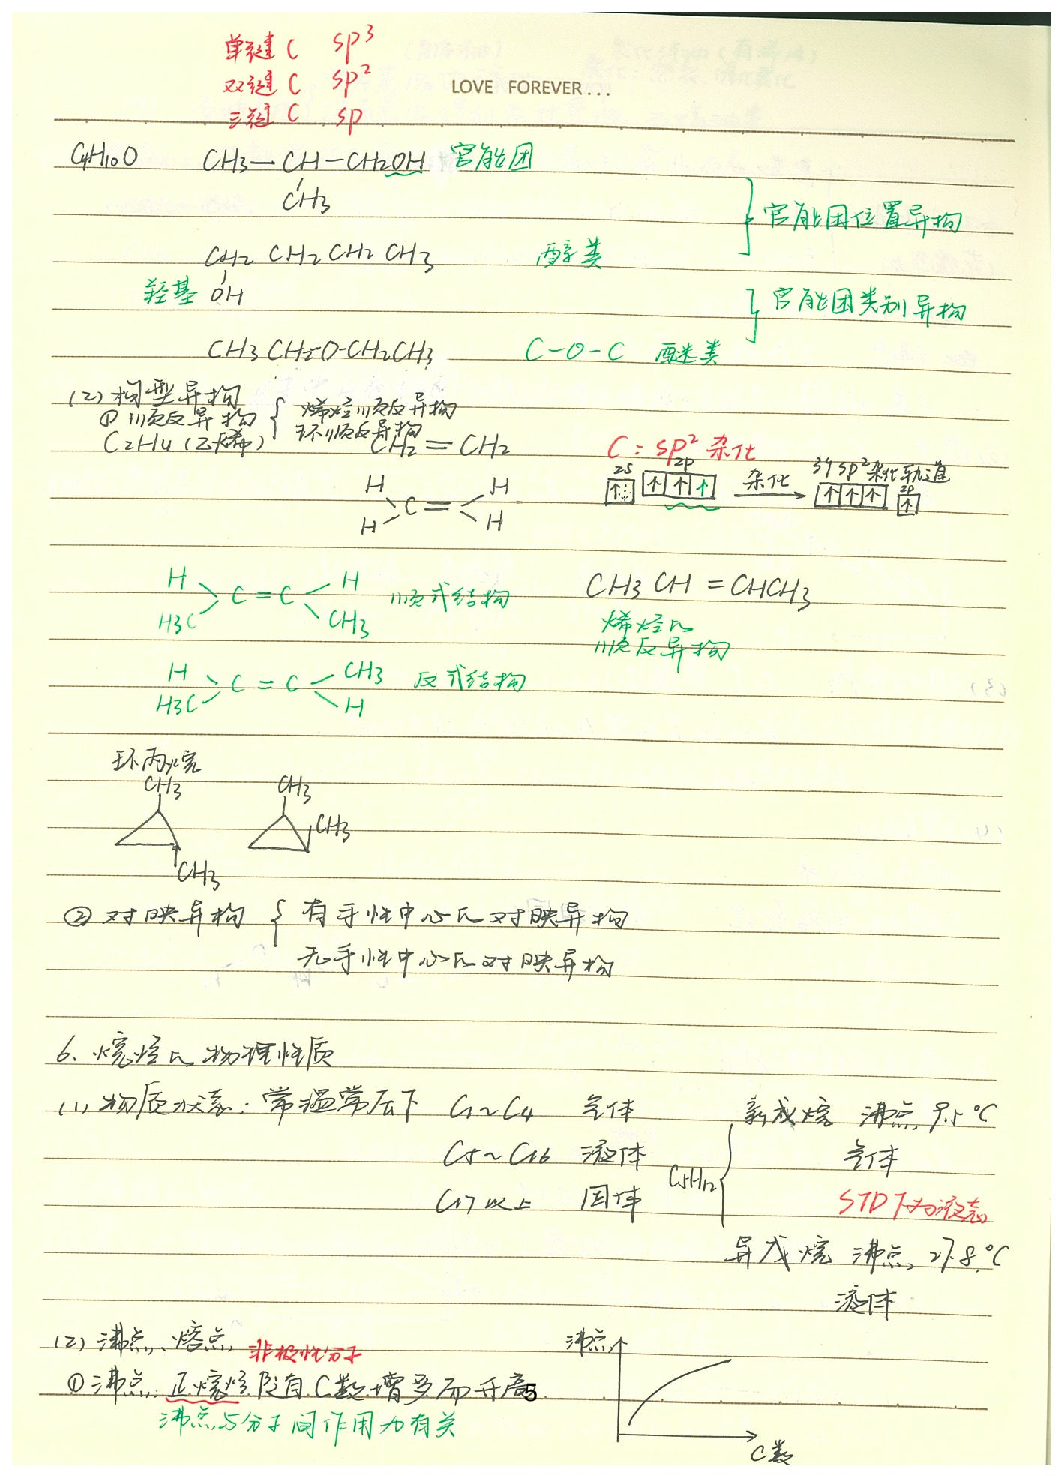 单键C sp³
双键C sp²
三键C sp
LOVE FOREVER...
C4H10O CH3—CH—CH2OH 官能团
CH3
官能团位置异构
CH2 CH2 CH2 CH3 醇类
羟基 OH
官能团类别异构
CH3CH2O-CH2CH3 C-O-C 醚类
(2) 构型异构
①顺反异构 { 烯烃顺反异构
环顺反异构
C2H4(乙烯) CH2=CH2
C:sp²杂化
2S 2P 杂化 3个sp²杂化轨道
2P
H H
C=
H H
H H
C=C 顺式结构
H3C CH3
CH3CH=CHCH3
烯烃的
顺反异构
H CH3
C=C 反式结构
H3C H
环丙烷
CH3 CH3
CH3
CH3
②对映异构 { 有手性中心的对映异构
无手性中心的对映异构
6. 烷烃的物理性质
(1) 物质状态:常温常压下 C1~C4 气体
C5~C16 液体
C17以上 固体
C5H12
新戊烷 沸点 9.5℃
气体
STD下为液态
异戊烷 沸点 27.8℃
液体
(2) 沸点、熔点 非极性分子
①沸点:正烷烃随着C数增多而升高
沸点与分子间作用力有关
沸点
C数
5